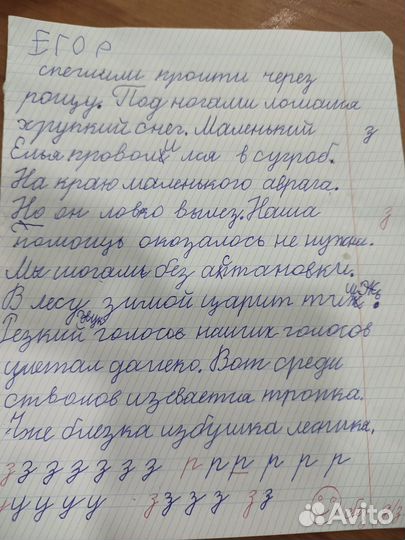 ЕГОР
спешили пройти через
рощу. Под ногами ломался
хрупкий снег. Маленький з
Елья провол и лся в сугроб.
На краю маленького аврага. з
Но он ловко вылез. Наша
помощь оказалось не нужни.
Мы шогали без актановки.
В лесу зимой царит тиш
Резкий голосов наших голосов
улетал далеко. Вот среди
стволов извевается тропка.
Уже блезка избушка лесника.
з з з з з з з р р р р р р р
у у у у у з з з з з з
Avito